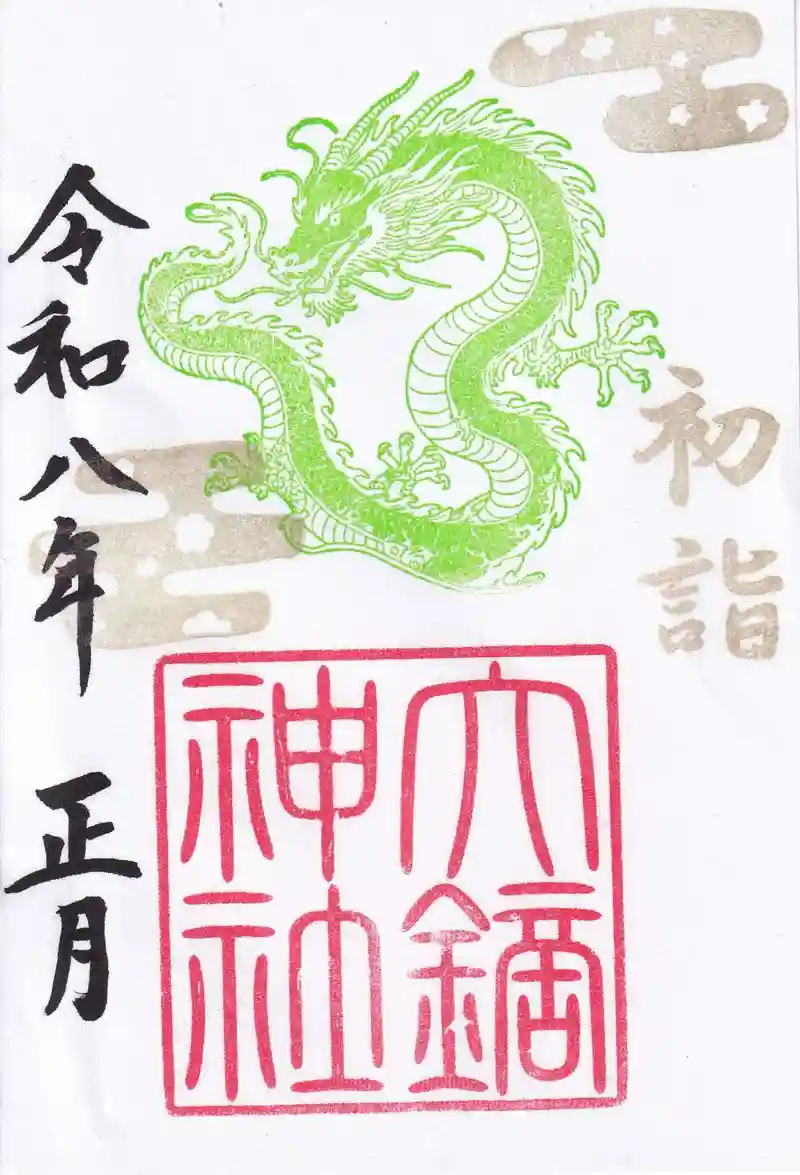 初詣
大鏑
神社
令和八年 正月